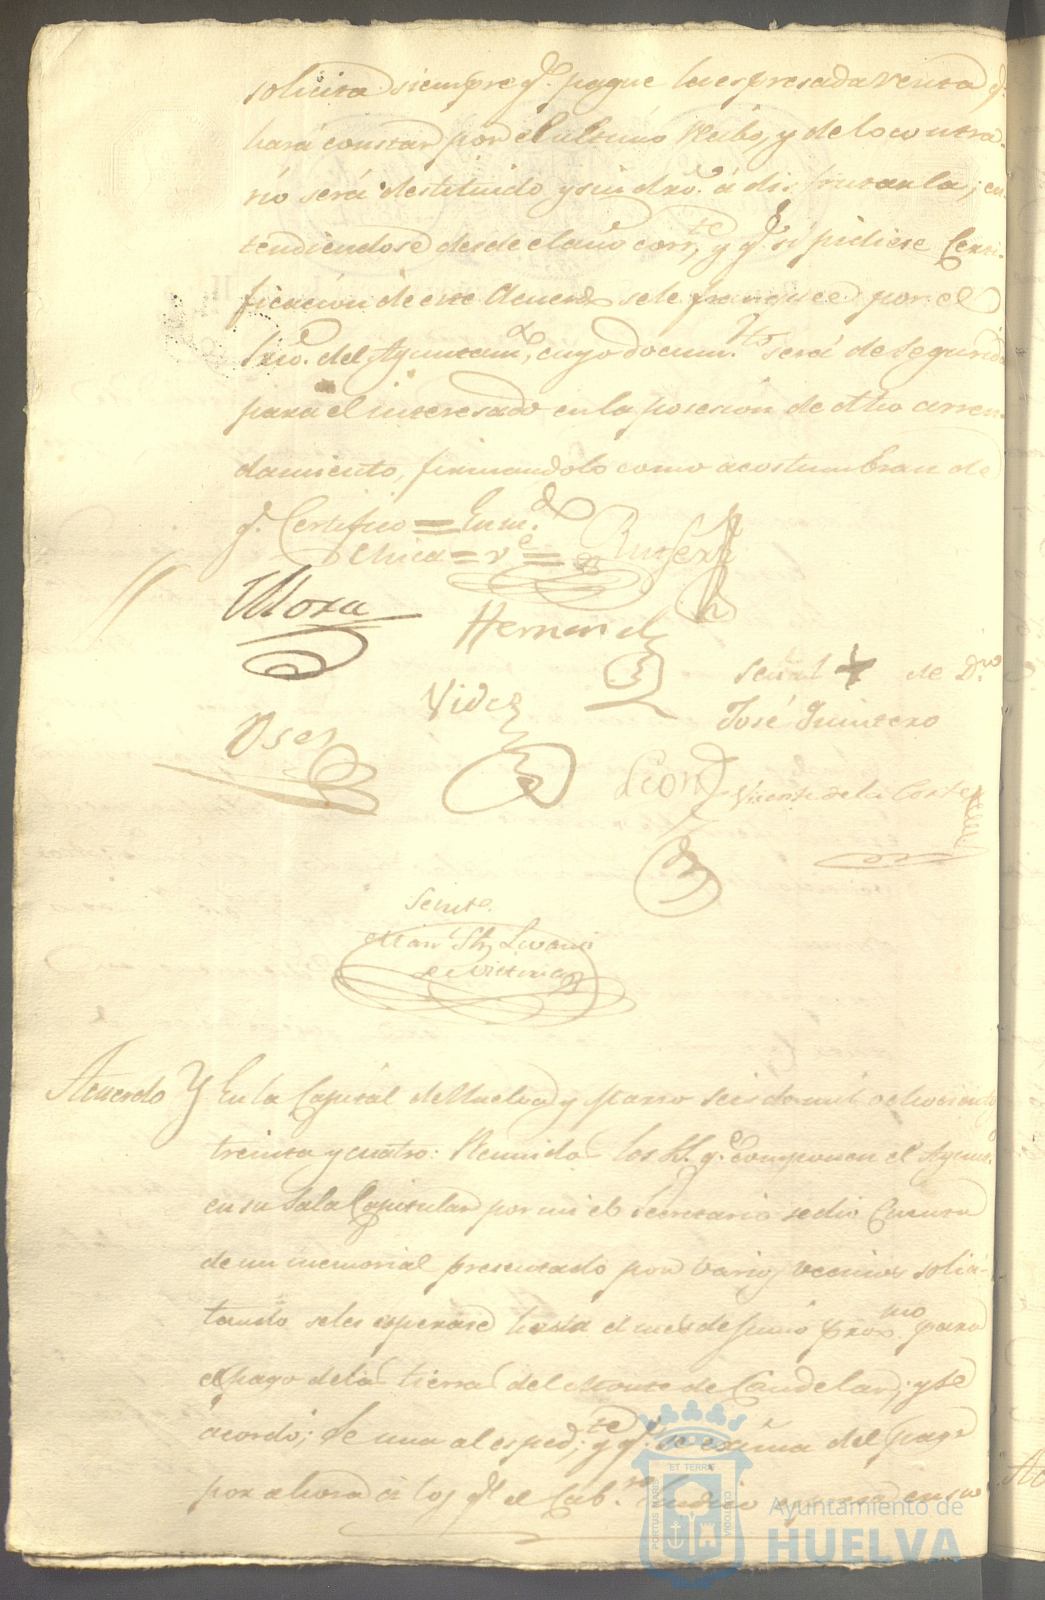 solicita siempre q.e pague la espresada renta q.e
hará constar por el ultimo Recibo, y de lo contra-
rio será destituido y sin dro. á disfrutarla; en-
tendiendose desde el año corr.te, y q.e si pidiese Certi-
ficacion de este Acuerdo se le franquee por el
Srio. del Ayuntam.to, cuyo docum.to será de seguridad
para el interesado en la posesion de otho arren-
damiento, firmandolo como acostumbran de
q.e Certifico = Enm.do
Chica = v.e =
Mora
Hernand
señal + de D.n
José Quintero
Videz
León
Vicente de la Corte
Acuerdo Y En la Capital de Huelva y Marzo seis de mil ochocientos
treinta y cuatro: Reunidos los SS. q.e componen el Ayunt.
en su Sala Capitular por mi el Secretario se dio Cuenta
de un memorial presentado por varios vecinos solici-
tando se les esperase hasta el mes de Junio prox.mo para
el pago de las tierras del Monte de Candelar; y se
acordó; Se una al esped.te; y q.e se exîma del pago
por ahora á los q.e el Cab.ro Sindico
PORTUS MARIS ET TERRE CUSTODIA
Ayuntamiento de
HUELVA